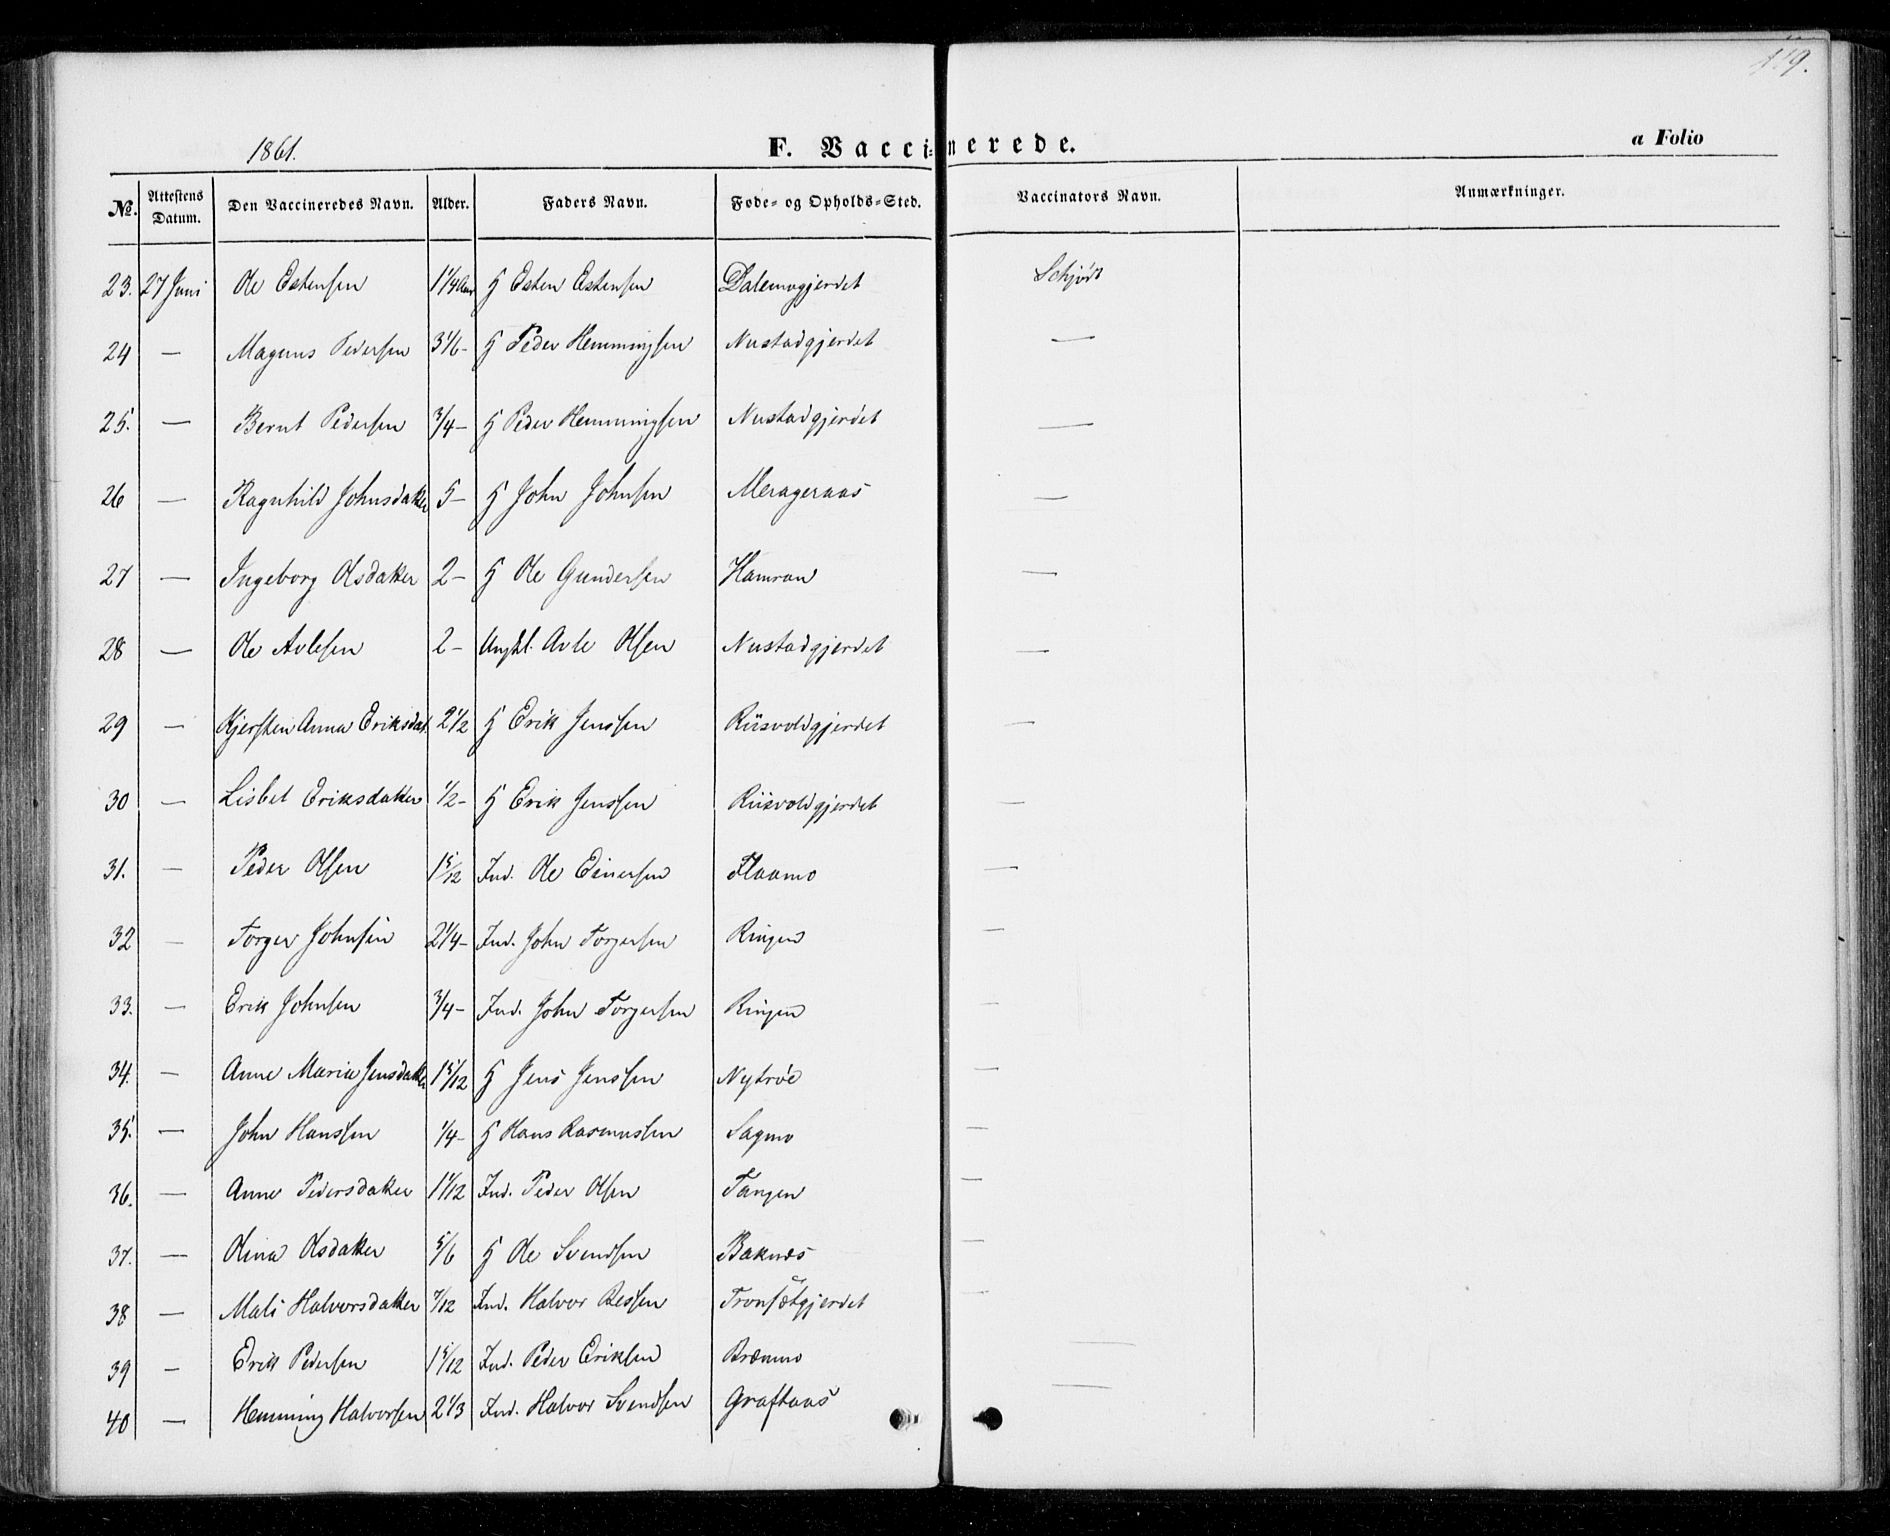 119.
1861.
F. Vaccinerede.
a Folio
No. Attestens Datum. Den Vaccineredes Navn. Alder. Faders Navn. Føde- og Opholds-Sted. Vaccinators Navn. Anmærkninger.
23. 27 Juni Ole Estensen 1 1/4 Aar G Esten Estensen Dalemogjerdet Schjødt
24 — Magnus Pedersen 3 1/6 - G Peder Hemmingsen Nustadgjerdet —
25. — Bernt Pedersen 3/4 - G Peder Hemmingsen Nustadgjerdet —
26 — Ragnhild Johnsdatter 5 - G John Johnsen Merageraas —
27 — Ingeborg Olsdatter 2 - G Ole Gundersen Hamran —
28 — Ole Avlesen 2 - Ungkl. Avle Olsen Nustadgjerdet —
29 — Kjersten Anna Eriksdat. 2 1/2 G Erik Jenssen Riisvoldgjerdet —
30 — Lisbet Eriksdatter 1/2 - G Erik Jenssen Riisvoldgjerdet —
31. — Peder Olsen 1 5/12 Ind. Ole Einersen Flaamo —
32 — Torger Johnsen 2 1/4 - Ind. John Torgersen Ringen —
33. — Erik Johnsen 3/4 - Ind. John Torgersen Ringen —
34. — Anne Maria Jensdatter 1 5/12 G Jens Jenssen Nytrøe —
35. — John Hanssen 1/4 - G Hans Rasmussen Sagmo —
36. — Anne Pedersdatter 1 1/12 Ind. Peder Olsen Tangen —
37. — Olina Olsdatter 5/6 G Ole Svendsen Baknæs —
38 — Mali Halvorsdatter 7/12 Ind. Halvor Bessen Tronsætgjerdet —
39 — Erik Pedersen 1 5/12 Ind. Peder Eriksen Brænmo —
40 — Hemming Halvorsen 2 1/3 Ind. Halvor Svendsen Graftaas —